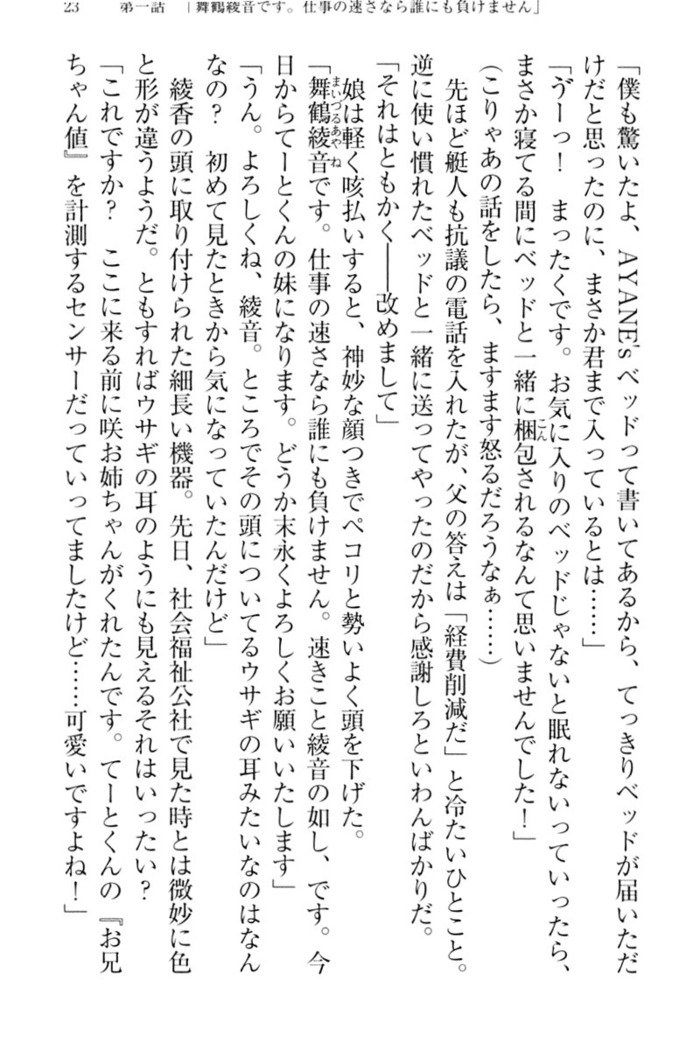 23　第一話　「舞鶴綾音です。仕事の速さなら誰にも負けません」
「僕も驚いたよ、AYANE'sベッドって書いてあるから、てっきりベッドが届いただ
けだと思ったのに、まさか君まで入っているとは……」
「ゔーっ！　まったくです。お気に入りのベッドじゃないと眠れないっていったら、
まさか寝てる間にベッドと一緒に梱包されるなんて思いませんでした！」
（こりゃあの話をしたら、ますます怒るだろうなぁ……）
先ほど艇人も抗議の電話を入れたが、父の答えは「経費削減だ」と冷たいひとこと。
逆に使い慣れたベッドと一緒に送ってやったのだから感謝しろといわんばかりだ。
「それはともかく――改めまして」
娘は軽く咳払いすると、神妙な顔つきでペコリと勢いよく頭を下げた。
「舞鶴綾音です。仕事の速さなら誰にも負けません。速きこと綾音の如し、です。今
日からてーとくんの妹になります。どうか末永くよろしくお願いいたします」
「うん。よろしくね、綾音。ところでその頭についてるウサギの耳みたいなのはなん
なの？　初めて見たときから気になっていたんだけど」
綾香の頭に取り付けられた細長い機器。先日、社会福祉公社で見た時とは微妙に色
と形が違うようだ。ともすればウサギの耳のようにも見えるそれはいったい？
「これですか？　ここに来る前に咲お姉ちゃんがくれたんです。てーとくんの『お兄
ちゃん値』を計測するセンサーだっていってましたけど……可愛いですよね！」